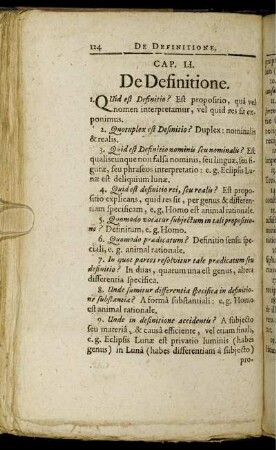 124 DE DEFINITIONE.
CAP. LI.
De Definitione.
1. QUid est Definitio? Est propositio, quâ vel
nomen interpretamur, vel quid res sit ex-
ponimus.
2. Quotuplex est Definitio? Duplex: nominalis
& realis.
3. Quid est Definitio nominis seu nominalis? Est
qualiscunque non falsa nominis, seu linguæ, seu fi-
guræ, seu phraseos interpretatio: e. g. Eclipsis Lu-
næ est deliquium lunæ.
4. Quid est definitio rei, seu realis? Est propo-
sitio explicans, quid res sit, per genus & differenti-
am specificam, e. g. Homo est animal rationale.
5. Quomodo vocatur subjectum in tali propositio-
ne? Definitum, e. g. Homo.
6. Quomodo prædicatum? Definitio sensu speci-
ali, e. g. animal rationale.
7. In quot partes resolvitur tale prædicatum seu
definitio? In duas, quatum una est genus, altera
differentia specifica.
8. Unde sumitur differentia specifica in definitio-
ne substantiæ? A formâ substantiali: e. g. Homo
est animal rationale,
9. Unde in definitione accidentis? A subjecto
seu materiâ, & causâ efficiente, vel etiam finali,
e. g. Eclipsis Lunæ est privatio luminis (habes
genus) in Lunâ (habes differentiam à subjecto)
pro-